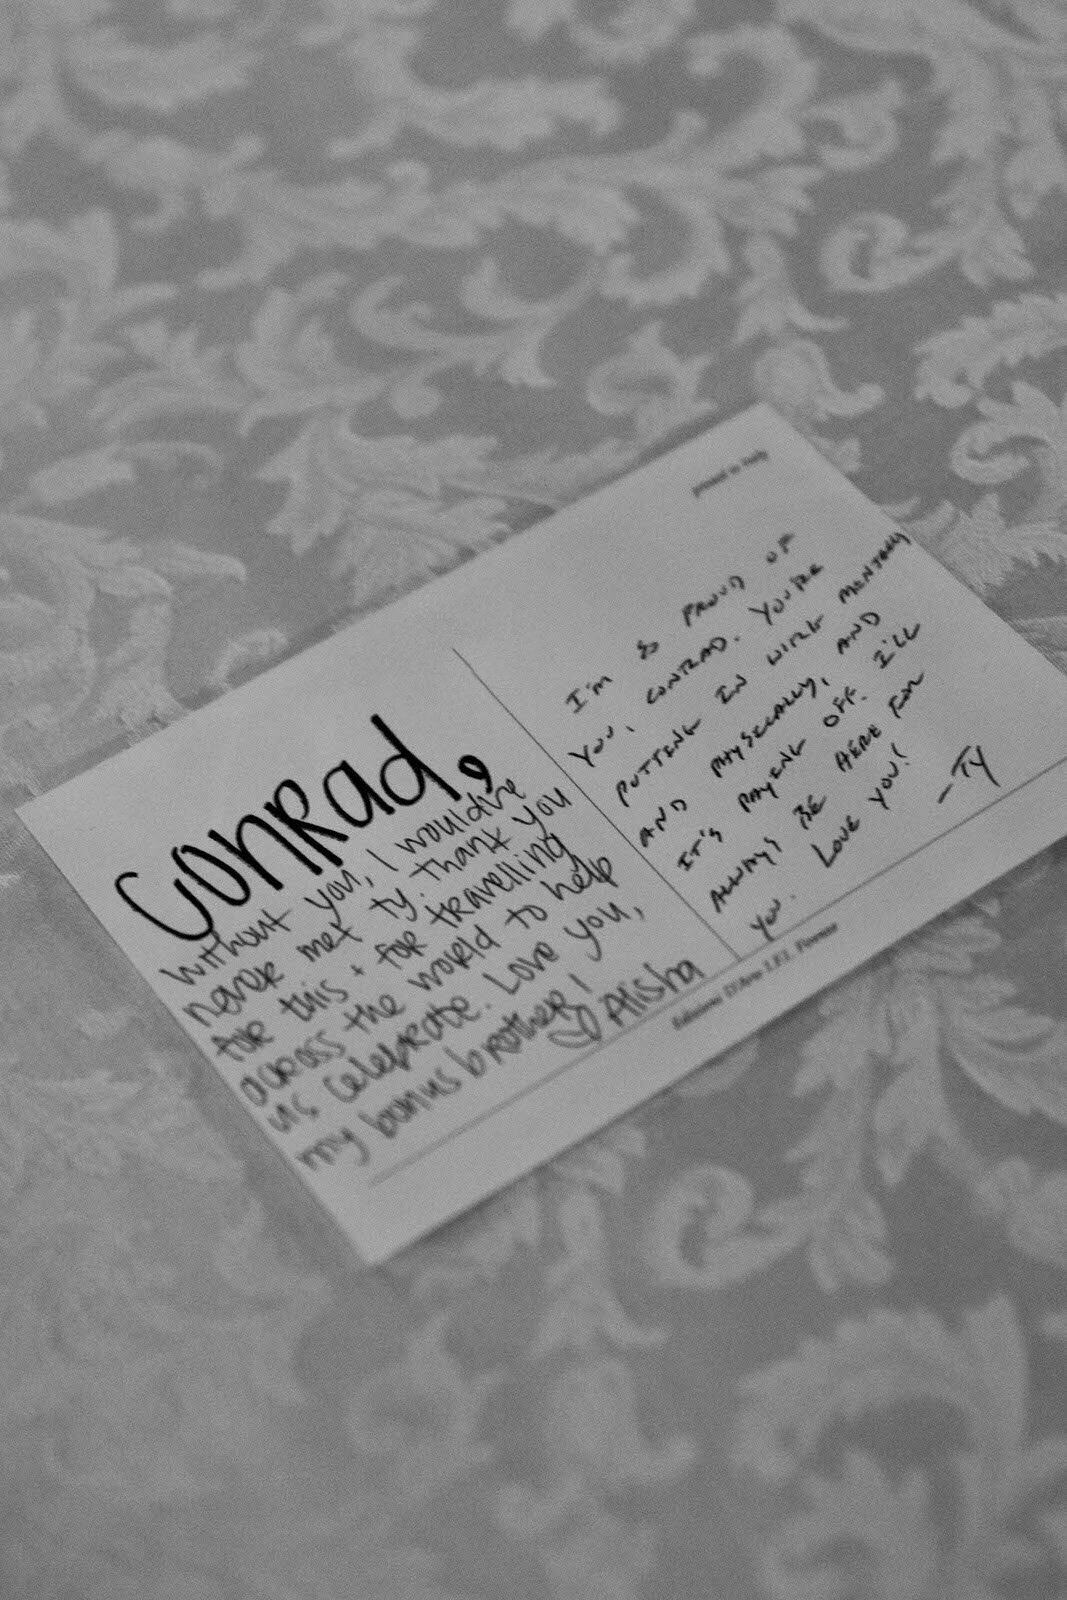 Conrad,
without you, I wouldve
never met ty. thank you
for this + for travelling
across the world to help
us celebrate. Love you,
my bonus brother!
Alisha
printed in Italy
I'M SO PROUD OF
YOU, CONRAD. YOU'RE
PUTTING IN WORK MENTALLY
AND PHYSICALLY, AND
IT'S PAYING OFF. I'LL
ALWAYS BE HERE FOR
YOU. LOVE YOU!
-TY
Edizioni D'Arte I.F.I. Firenze